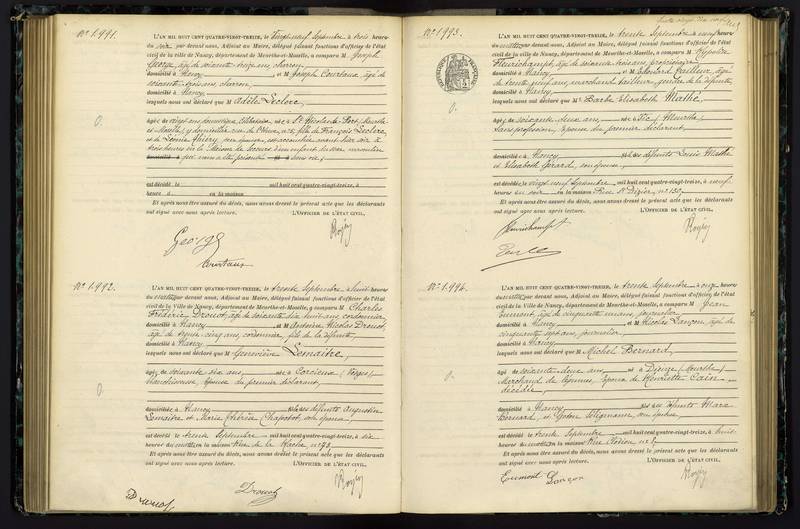 N° 1.991.
L'AN MIL HUIT CENT QUATRE-VINGT-TREIZE, le Vingt neuf Septembre à trois heures
du soir par devant nous, Adjoint au Maire, délégué faisant fonctions d'officier de l'état
civil de la ville de Nancy, département de Meurthe-et-Moselle, a comparu M Joseph
George, âgé de soixante treize ans, charron,
domicilié à Nancy et M Joseph Courtaux, âgé de
soixante trois ans, charron,
domicilié à Nancy
lesquels nous ont déclaré que M Adèle Leclerc,
âgée de vingt ans, célibataire, née à St Nicolas de Port, Meurthe
et Moselle, y domiciliée, fille de François Leclerc
et de Thiéry son épouse, est accouchée avant hier soir à
trois heures en la Maison de Secours d'un enfant du sexe masculin
qui nous a été présenté sans vie;
est décédé le mil huit cent quatre-vingt-treize, à
heure en la maison
Et après nous être assuré du décès, nous avons dressé le présent acte que les déclarants
ont signé avec nous après lecture. L'OFFICIER DE L'ÉTAT CIVIL,
George
Courtaux
N° 1.992.
L'AN MIL HUIT CENT QUATRE-VINGT-TREIZE, le trente Septembre à huit heures
du matin par devant nous, Adjoint au Maire, délégué faisant fonctions d'officier de l'état
civil de la Ville de Nancy, département de Meurthe-et-Moselle, a comparu M Charles
Frédéric Drouot, âgé de soixante dix huit ans, cordonnier,
domicilié à Nancy et M Antoine Nicolas Drouot,
âgé de trente cinq ans, cordonnier, fils de la défunte,
domicilié à Nancy
lesquels nous ont déclaré que M Geneviève Lemaitre,
âgée de soixante dix ans, née à Corcieux (Vosges)
blanchisseuse, épouse du premier déclarant,
domiciliée à Nancy fille des défunts Augustin
Lemaitre et Marie Thérèse Chapotot, son épouse,
est décédée le trente Septembre mil huit cent quatre-vingt-treize, à six
heures du matin en la maison Rue de la Hache n° 93
Et après nous être assuré du décès, nous avons dressé le présent acte que les déclarants
ont signé avec nous après lecture. L'OFFICIER DE L'ÉTAT CIVIL,
Drouot
Drouot
N° 1993.
L'AN MIL HUIT CENT QUATRE-VINGT-TREIZE, le trente Septembre à neuf heures
du matin par devant nous, Adjoint au Maire, délégué faisant fonctions d'officier de l'état
civil de la ville de Nancy, département de Meurthe-et-Moselle, a comparu M Hippolyte
âgé de soixante trois ans, propriétaire,
domicilié à Nancy et M Edouard âgé
de trente neuf ans, marchand tailleur, gendre de la défunte,
domicilié à Nancy,
lesquels nous ont déclaré que M Barbe Elisabeth Mathie,
âgée de soixante deux ans, née à Vic (Meurthe)
sans profession, épouse du premier déclarant,
domiciliée à Nancy fille des défunts Louis Mathie
et Elisabeth Girard, son épouse,
est décédée le vingt neuf Septembre mil huit cent quatre-vingt-treize, à neuf
heures du soir en la maison Rue St Dizier, n° 130
Et après nous être assuré du décès, nous avons dressé le présent acte que les déclarants
ont signé avec nous après lecture. L'OFFICIER DE L'ÉTAT CIVIL,
N° 1994.
L'AN MIL HUIT CENT QUATRE-VINGT-TREIZE, le trente Septembre à onze heures
du matin par devant nous, Adjoint au Maire, délégué faisant fonctions d'officier de l'état
civil de la ville de Nancy, département de Meurthe-et-Moselle, a comparu M Jean
Eumont, âgé de cinquante un ans, journalier,
domicilié à Nancy et M Nicolas Lançon, âgé de
cinquante sept ans, journalier,
domicilié à Nancy
lesquels nous ont déclaré que M Michel Bernard,
âgé de soixante deux ans, né à Dieuze (Meurthe)
Marchand de légumes, époux de Henriette Caïn
décédée,
domicilié à Nancy fils des défunts Marc
Bernard, et son épouse
est décédé le trente Septembre mil huit cent quatre-vingt-treize, à huit
heures du matin en la maison Rue Clodion n° 8
Et après nous être assuré du décès, nous avons dressé le présent acte que les déclarants
ont signé avec nous après lecture. L'OFFICIER DE L'ÉTAT CIVIL,
Eumont
Lançon